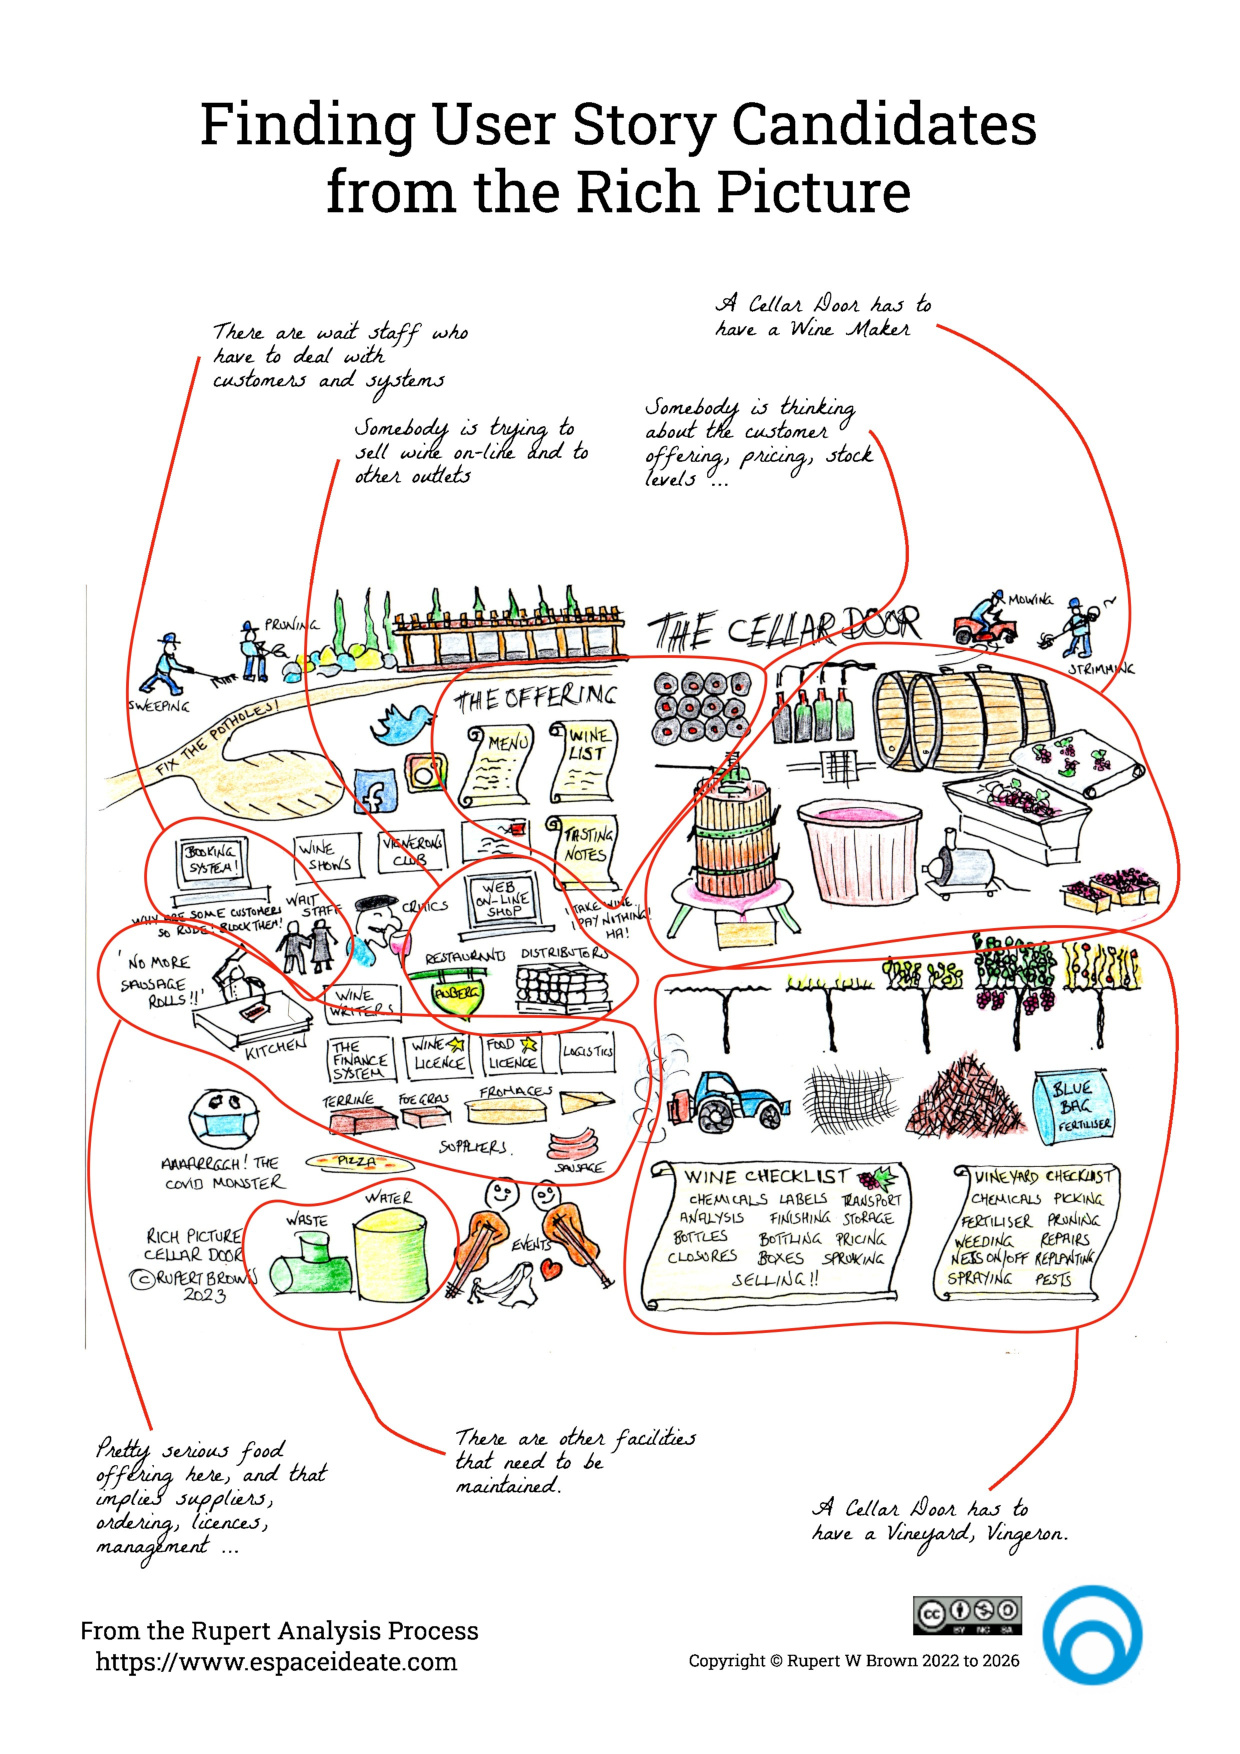 Finding User Story Candidates
from the Rich Picture
A Cellar Door has to
have a Wine Maker
There are wait staff who
have to deal with
customers and systems
Somebody is trying to
sell wine on-line and to
other outlets
Somebody is thinking
about the customer
offering, pricing, stock
levels ...
PRUNING
SWEEPING
FIX THE POTHOLES!
THE CELLAR DOOR
MOWING
STRIMMING
THE OFFERING
MENU
WINE
LIST
TASTING
NOTES
BOOKING
SYSTEM!
WINE
SHOWS
VIGNERONS
CLUB
WHY ARE SOME CUSTOMERS
SO RUDE! BLOCK THEM!
WAIT
STAFF
CRITICS
WEB
ON-LINE
SHOP
I TAKE WINE
I PAY NOTHING!
HA!
'NO MORE
SAUSAGE
ROLLS!!'
KITCHEN
WINE
WRITERS
RESTAURANTS
AUBERG
DISTRIBUTORS
THE
FINANCE
SYSTEM
WINE
LICENCE
FOOD
LICENCE
LOGISTICS
TERRINE
FOE GRAS
FROMAGES
SUPPLIERS.
SAUSAGE
PIZZA
AAAARRGGH! THE
COVID MONSTER
BLUE
BAG
FERTILISER
WINE CHECKLIST
CHEMICALS LABELS TRANSPORT
ANALYSIS FINISHING STORAGE
BOTTLES BOTTLING PRICING
CLOSURES BOXES SPRUKING
SELLING!!
VINEYARD CHECKLIST
CHEMICALS PICKING
FERTILISER PRUNING
WEEDING REPAIRS
NETS ON/OFF REPLANTING
SPRAYING PESTS
WASTE
WATER
EVENTS
RICH PICTURE
CELLAR DOOR
© RUPERT BROWN
2023
Pretty serious food
offering here, and that
implies suppliers,
ordering, licences,
management ...
There are other facilities
that need to be
maintained.
A Cellar Door has to
have a Vineyard, Vingeron.
From the Rupert Analysis Process
https://www.espaceideate.com
cc
BY NC SA
Copyright © Rupert W Brown 2022 to 2026